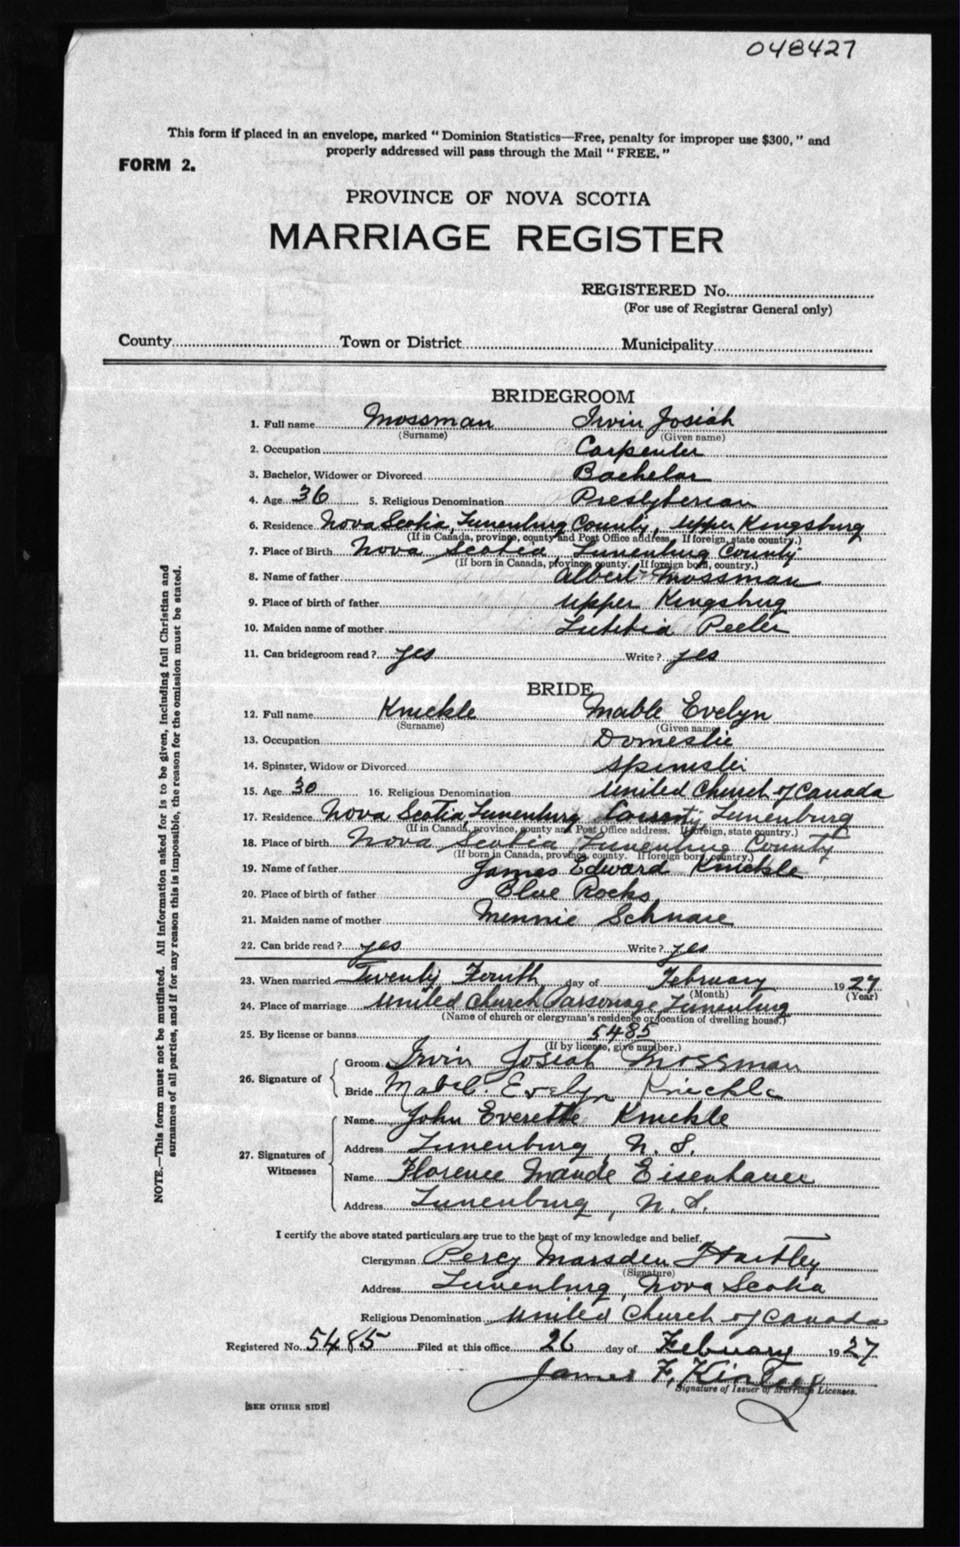 048427
This form if placed in an envelope, marked "Dominion Statistics—Free, penalty for improper use $300," and
properly addressed will pass through the Mail "FREE."
FORM 2.
PROVINCE OF NOVA SCOTIA
MARRIAGE REGISTER
REGISTERED No.
(For use of Registrar General only)
County Town or District Municipality
BRIDEGROOM
1. Full name Mossman Irvin Josiah
(Surname) (Given name)
2. Occupation Carpenter
3. Bachelor, Widower or Divorced Bachelor
4. Age 36 5. Religious Denomination Presbyterian
6. Residence Nova Scotia, Lunenburg County, Upper Kingsburg
(If in Canada, province, county and Post Office address. If foreign, state country.)
7. Place of Birth Nova Scotia, Lunenburg County
(If born in Canada, province, county. If foreign born, country.)
8. Name of father Albert Mossman
9. Place of birth of father Upper Kingsburg
10. Maiden name of mother Lutitia Peeler
11. Can bridegroom read? yes Write? yes
BRIDE
12. Full name Knickle Mable Evelyn
(Surname) (Given name)
13. Occupation Domestic
14. Spinster, Widow or Divorced Spinster
15. Age 30 16. Religious Denomination United Church of Canada
17. Residence Nova Scotia, Lunenburg County, Lunenburg
(If in Canada, province, county and Post Office address. If foreign, state country.)
18. Place of birth Nova Scotia Lunenburg County
(If born in Canada, province, county. If foreign born, country.)
19. Name of father James Edward Knickle
20. Place of birth of father Blue Rocks
21. Maiden name of mother Minnie Schnare
22. Can bride read? yes Write? yes
23. When married Twenty Fourth day of February 1927
(Month) (Year)
24. Place of marriage United Church Parsonage Lunenburg
(Name of church or clergyman's residence or location of dwelling house.)
25. By license or banns 5485
(If by license, give number.)
26. Signature of
Groom Irvin Josiah Mossman
Bride Mabel Evelyn Knickle
27. Signatures of Witnesses
Name John Everette Knickle
Address Lunenburg, N. S.
Name Florence Maude Eisenhauer
Address Lunenburg, N. S.
I certify the above stated particulars are true to the best of my knowledge and belief.
Clergyman Percy Marsden Hartley
(Signature)
Address Lunenburg, Nova Scotia
Religious Denomination United Church of Canada
Registered No. 5485 Filed at this office 26 day of February 1927
James F. Kinley
Signature of Issuer of Marriage Licenses.
[SEE OTHER SIDE]
NOTE.—This form must not be mutilated. All information asked for is to be given, including full Christian and
surnames of all parties, and if for any reason this is impossible, the reason for the omission must be stated.